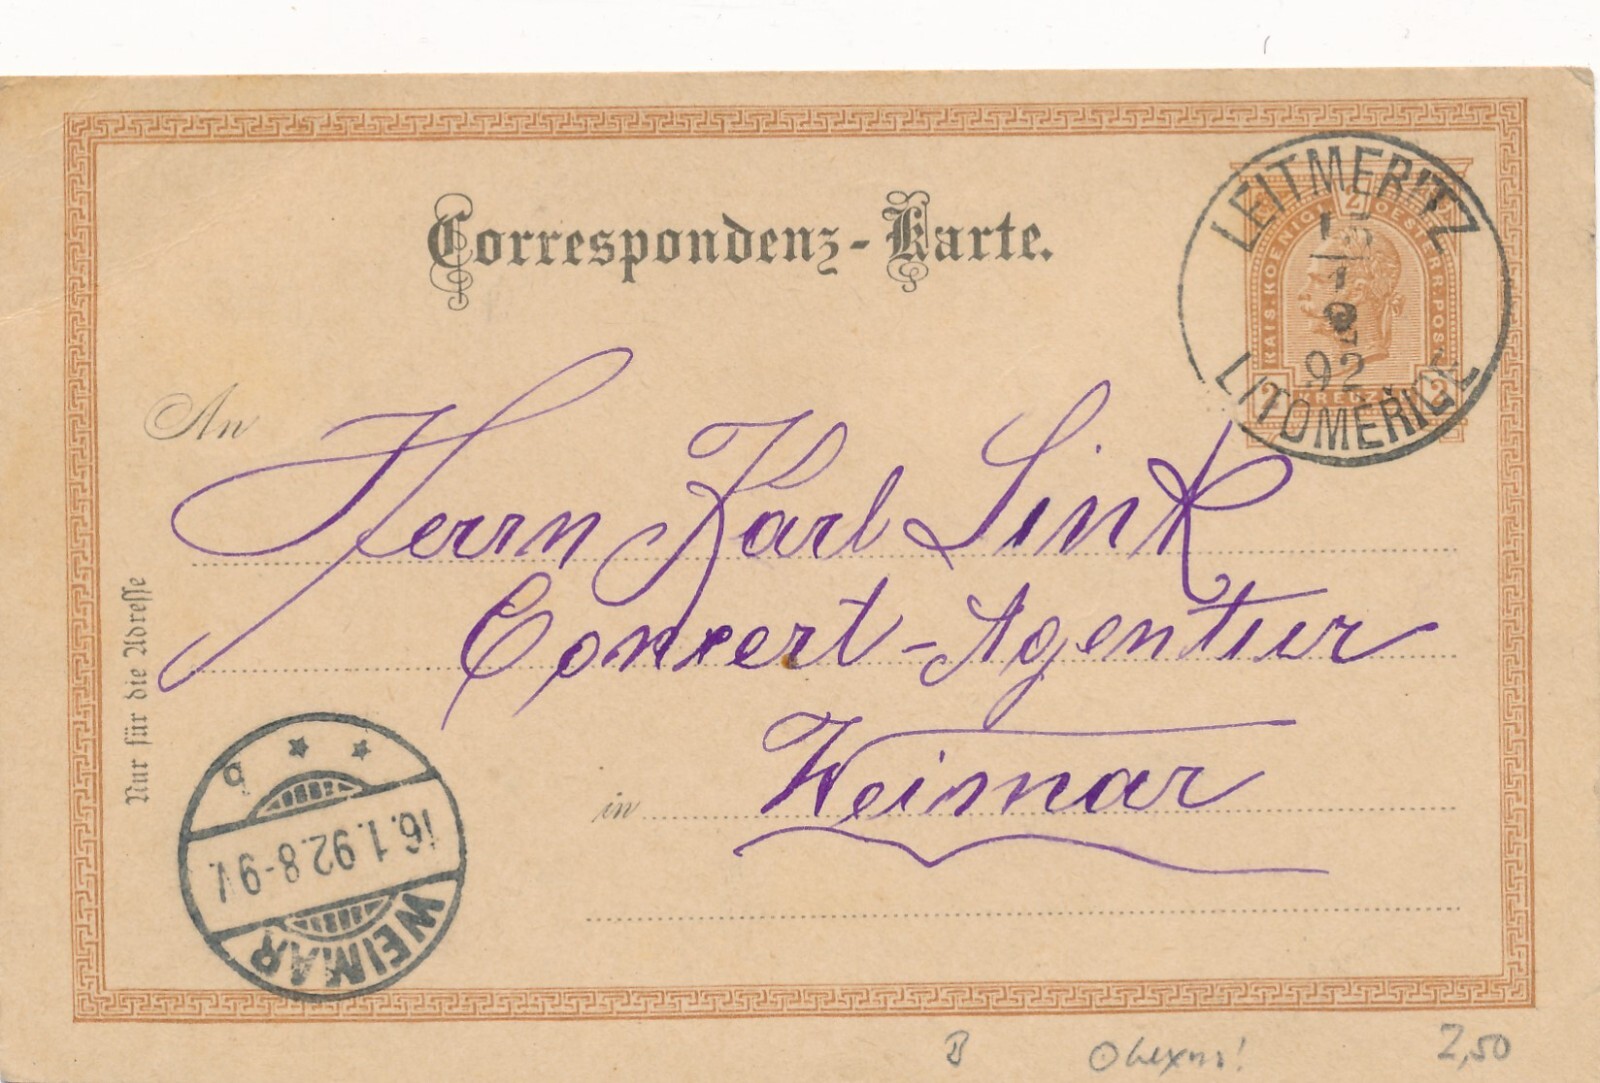 Correspondenz-Karte.
LEITMERITZ
15
1
92
LITOMĚŘICE
KAIS. KOENIGL. OESTERR. POST
2
2 KREUZER 2
An
Herrn Karl Link
Concert-Agentur
in Weimar
Nur für die Adresse
WEIMAR
16.1.92.8-9V.
b
B
2,50